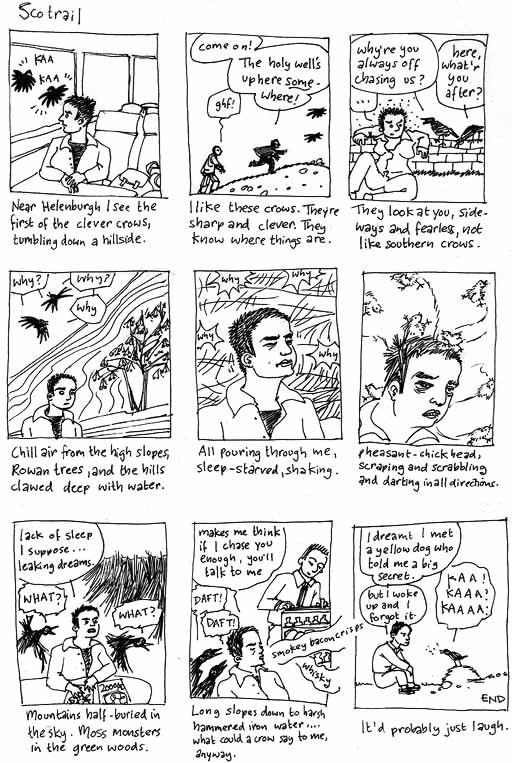 Scotrail
KAA
KAA
Near Helenburgh I see the
first of the clever crows,
tumbling down a hillside.
come on!
The holy well's
up here some-
where!
ghf!
I like these crows. They're
sharp and clever. They
know where things are.
why're you
always off
chasing us?
here,
what'r
you
after?
...
They look at you, side-
ways and fearless, not
like southern crows.
Why?
Why?
Why
Chill air from the high slopes,
Rowan trees, and the hills
clawed deep with water.
why
why
why
why
All pouring through me,
sleep-starved, shaking.
pheasant-chick head,
scraping and scrabbling
and darting in all directions.
lack of sleep
I suppose...
leaking dreams.
WHAT?
WHAT?
2000AD
Mountains half-buried in
the sky. Moss monsters
in the green woods.
makes me think
if I chase you
enough, you'll
talk to me
DAFT!
DAFT!
smokey bacon crisps
whisky
Long slopes down to harsh
hammered iron water....
what could a crow say to me,
anyway.
I dreamt I met
a yellow dog who
told me a big
secret.
but I woke
up and I
forgot it.
KAA!
KAAA!
KAAAA!
END
It'd probably just laugh.